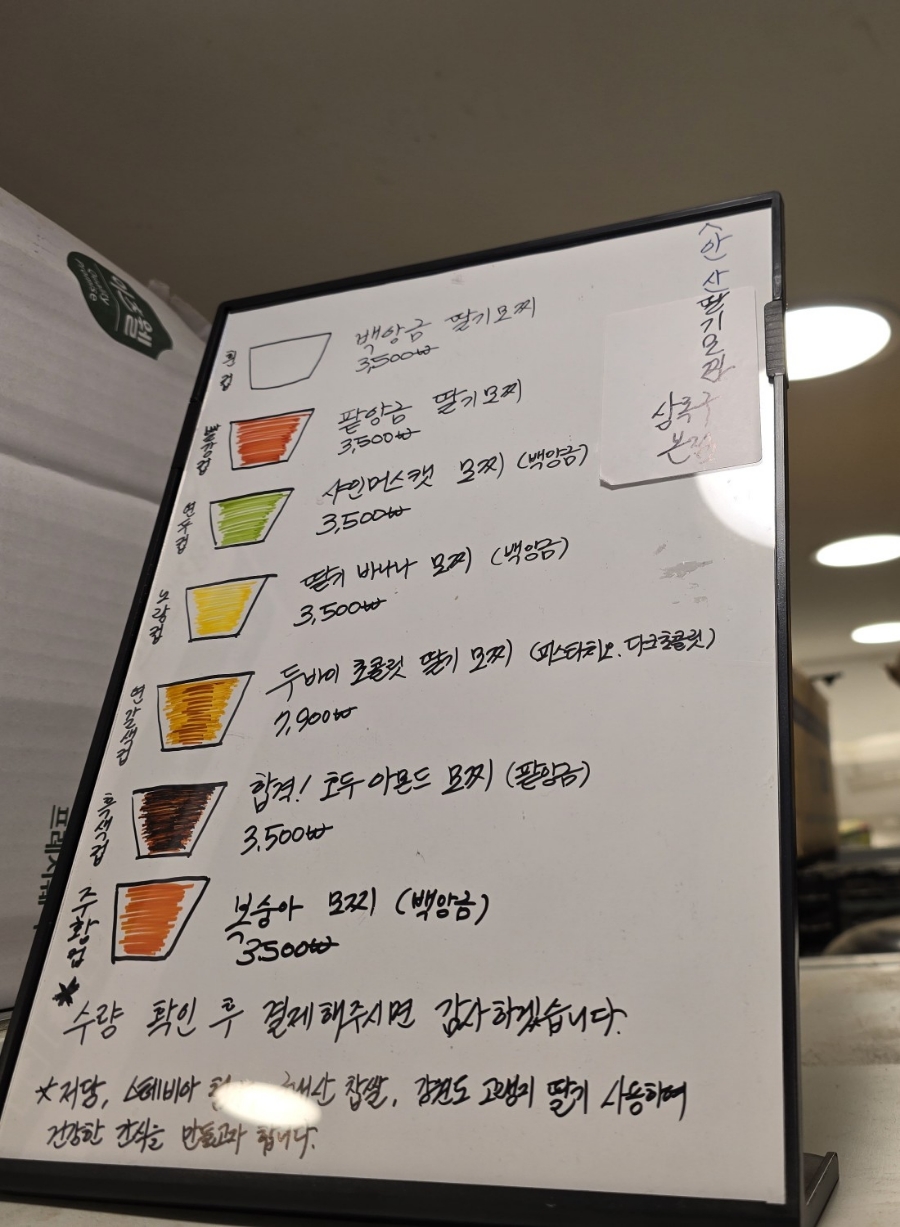 안산딸기모찌
삼록구
본점
흰컵
백앙금 딸기모찌
3,500₩
빨강컵
팥앙금 딸기모찌
3,500₩
연두컵
샤인머스캣 모찌 (백앙금)
3,500₩
노랑컵
딸기 바나나 모찌 (백앙금)
3,500₩
연갈색컵
두바이 초콜릿 딸기 모찌 (피스타치오.다크초콜릿)
7,900₩
흑색컵
합격! 호두아몬드 모찌 (팥앙금)
3,500₩
주황컵
복숭아 모찌 (백앙금)
3500₩
* 수량 확인 후 결제해주시면 감사하겠습니다.
*저당, 스테비아 찹쌀, 강원도 고랭지 딸기 사용하여
건강한 간식을 만들고자 합니다.